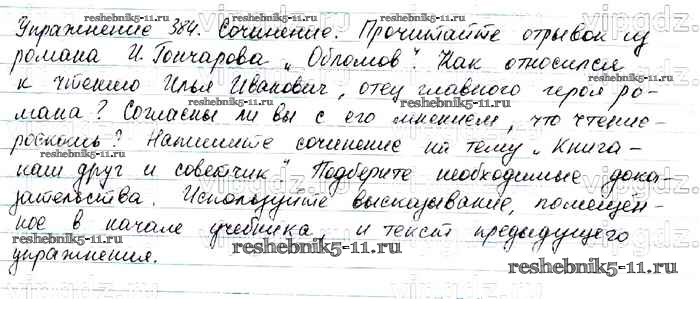 Упражнение 384. Сочинение. Прочитайте отрывок из
романа И. Гончарова „Обломов". Как относился
к чтению Илья Иванович, отец главного героя ро-
мана? Согласны ли вы с его мнением, что чтение-
роскошь? Напишите сочинение на тему „Книга-
наш друг и советчик" Подберите необходимые дока-
зательства. Используйте высказывание, помещён-
ное в начале учебника, и текст предыдущего
упражнения.
reshebnik5-11.ru
reshebnik5-11.ru
reshebnik5-11.ru
reshebnik5-11.ru
reshebnik5-11.ru
reshebnik5-11.ru
vipgdz